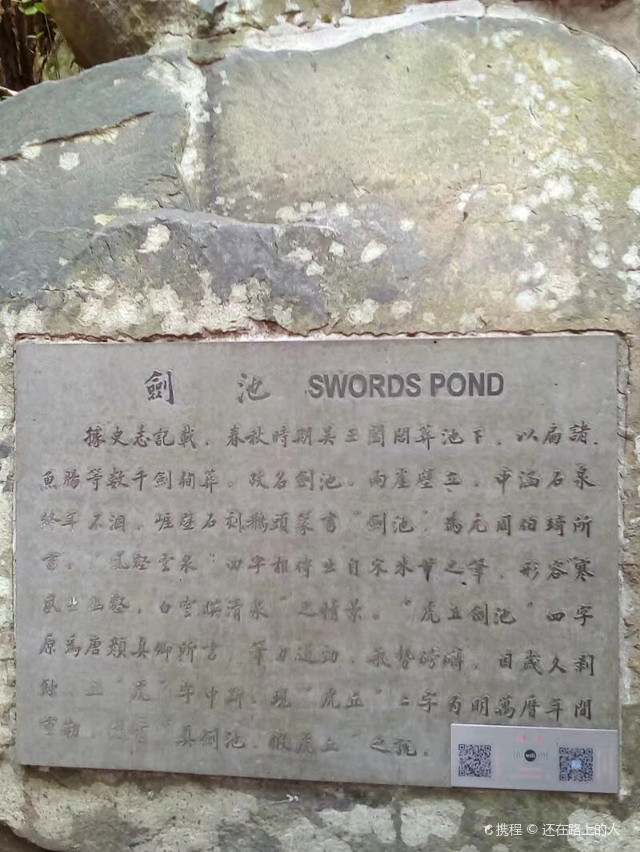 劍 池 SWORDS POND
據史志記載,春秋時期吴王闔閭葬池下,以扁諸、
魚腸等数千劍殉葬。故名劍池。两崖壁立,中涵石泉
終年不涸,崖壁石刻鵝頭篆書“劍池”,爲元周伯琦所
書。“風壑雲泉”四字相傳出自宋米芾之筆,形容“寒
風出幽壑,白雲映清泉”之情景。“虎丘劍池”四字
原爲唐顏真卿所書,筆力遒勁,氣勢磅礴,因歲久剥
蝕,“虎”字中斷,現“虎丘”二字乃明萬曆年間
重勒,故有“真劍池,假虎丘”之說。
携程 © 还在路上的人